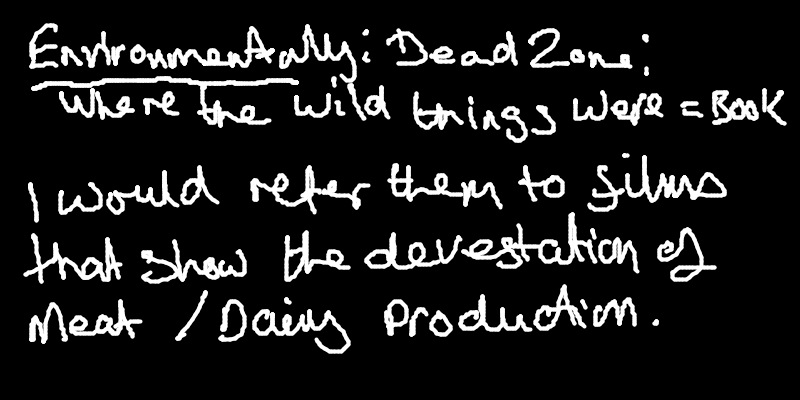 Environmentally: Dead Zone:
where the wild things were = Book
I would refer them to films
that show the devestation of
Meat / Dairy Production.